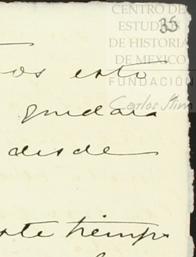 CENTRO DE
ESTUDIOS
DE HISTORIA
DE MEXICO
FUNDACIÓN
Carlos Slim
35
esto
quedara
desde
este tiempo